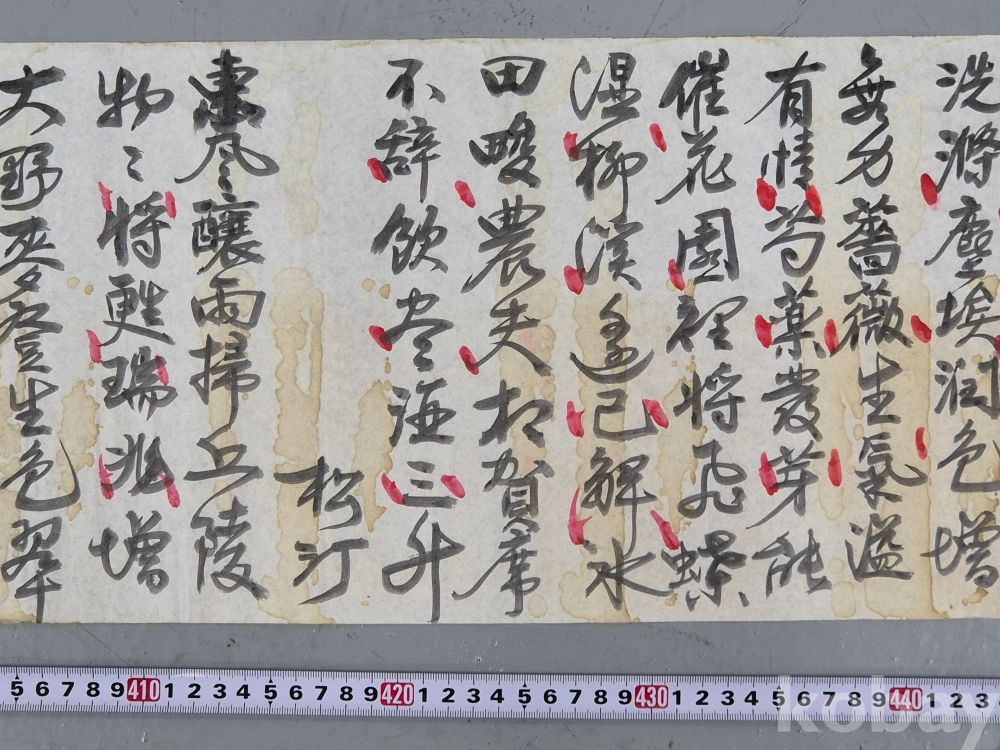 洗滌塵埃润色增
無力薔薇生氣溢
有情芍薬發芽能
催花園裡将飛蝶
湿柳溪邊已解氷
田畯農夫相賀席
不辞飲尽海三升
松汀
東風釀雨掃丘陵
物〻将甦瑞兆增
大野麥登生色翠
5 6 7 8 9 410 1 2 3 4 5 6 7 8 9 420 1 2 3 4 5 6 7 8 9 430 1 2 3 4 5 6 7 8 9 440 1 2 3
kobay